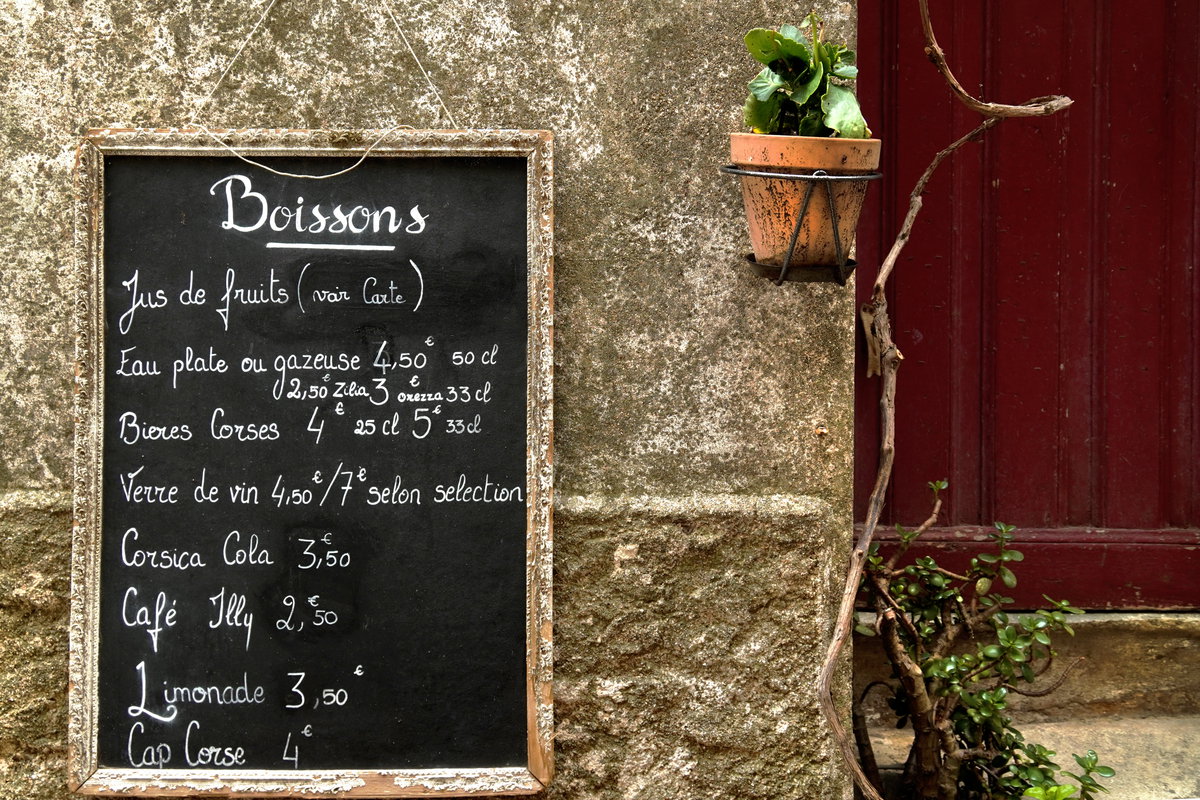 Boissons
Jus de fruits (voir Carte)
Eau plate ou gazeuse 4,50€ 50 cl
2,50€ Zilia 3€ orezza 33 cl
Bieres Corses 4€ 25 cl 5€ 33 cl
Verre de vin 4,50€/7€ selon selection
Corsica Cola 3,€50
Café Illy 2,€50
Limonade 3,50€
Cap Corse 4€